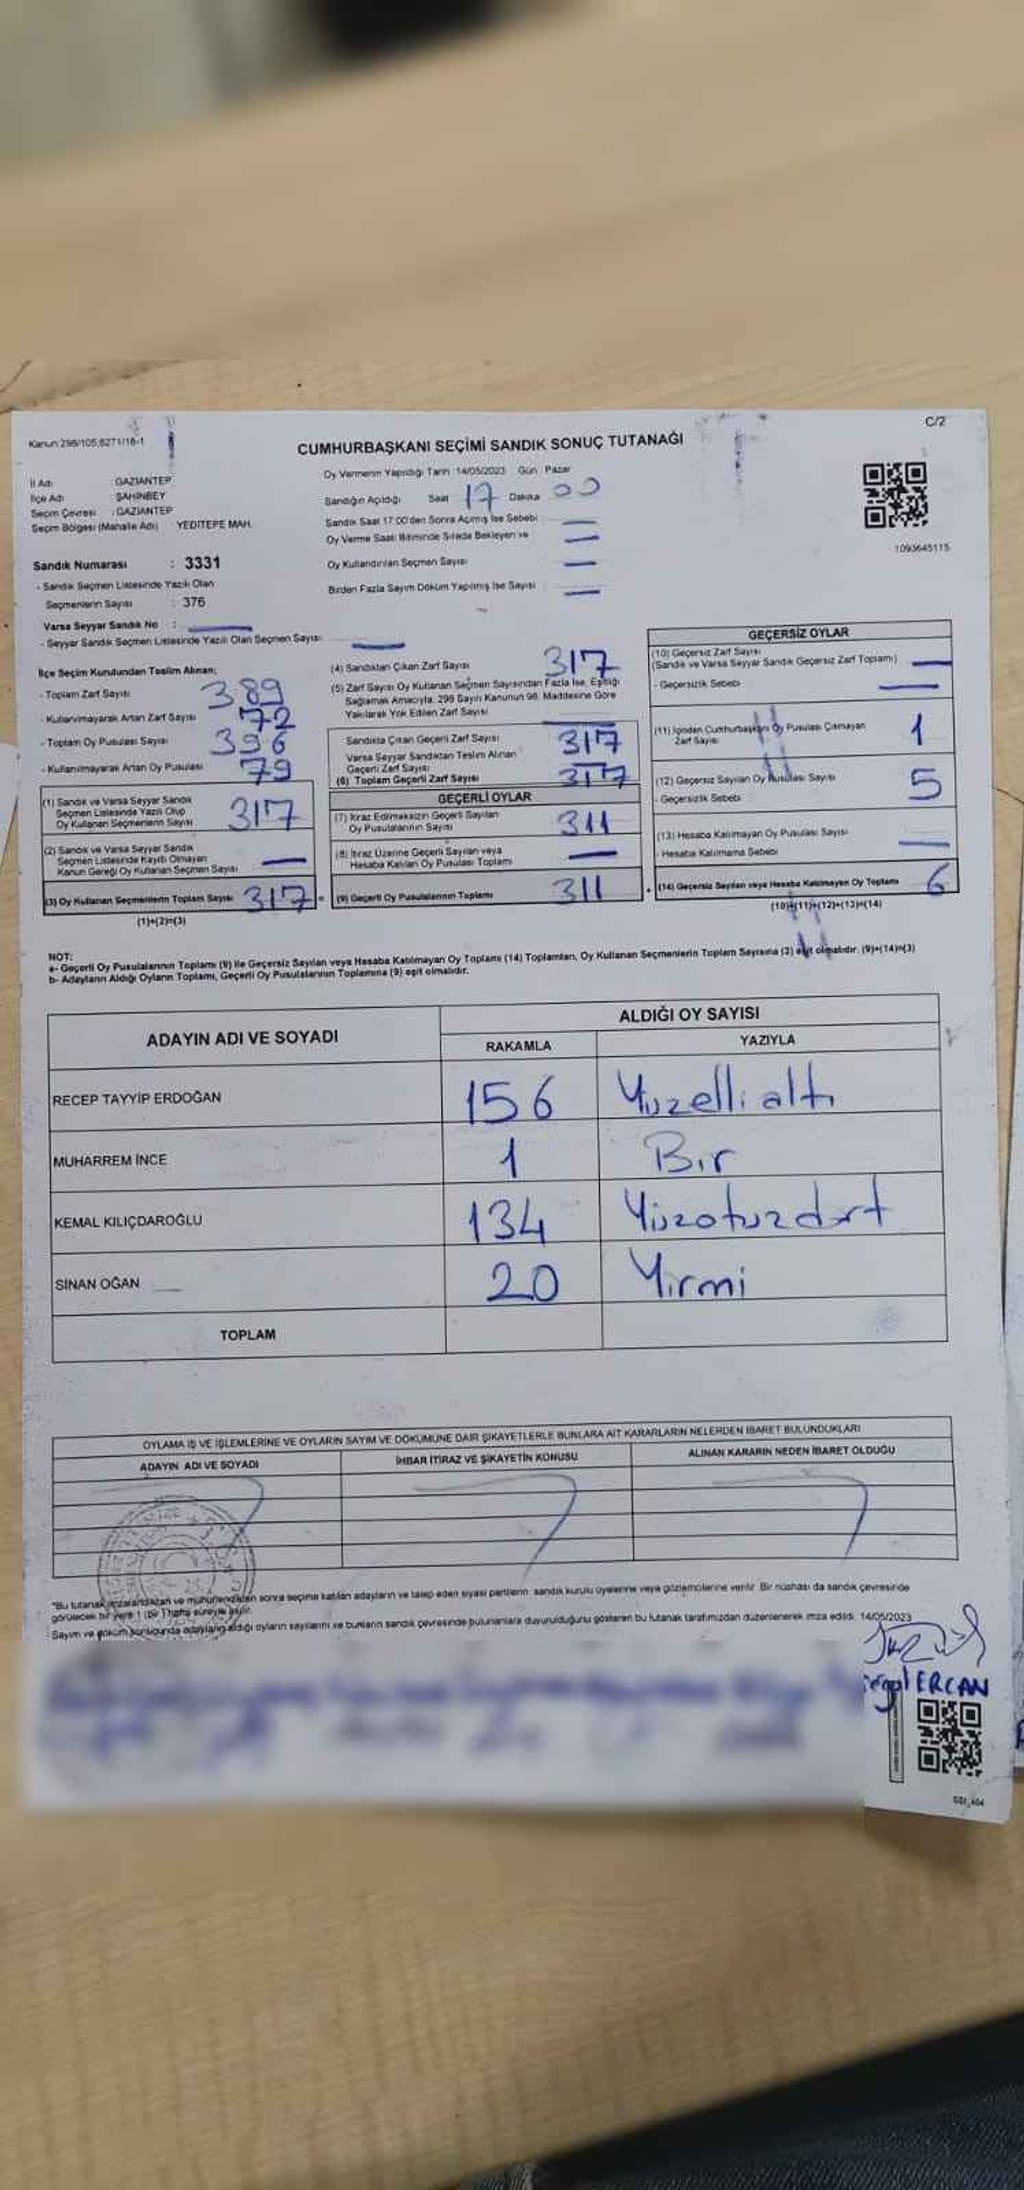 Kanun 298/105,6271/16-1
C/2
CUMHURBAŞKANI SEÇİMİ SANDIK SONUÇ TUTANAĞI
İl Adı : GAZİANTEP
İlçe Adı : ŞAHİNBEY
Seçim Çevresi : GAZİANTEP
Seçim Bölgesi (Mahalle Adı) YEDİTEPE MAH.
Oy Vermenin Yapıldığı Tarih :14/05/2023 Gün : Pazar
Sandığın Açıldığı Saat 17 Dakika 00
Sandık Saat 17:00'den Sonra Açılmış İse Sebebi
Oy Verme Saati Bitiminde Sırada Bekleyen ve
Oy Kullandırılan Seçmen Sayısı
Birden Fazla Sayım Döküm Yapılmış İse Sayısı
1093645115
Sandık Numarası : 3331
- Sandık Seçmen Listesinde Yazılı Olan
Seçmenlerin Sayısı : 376
Varsa Seyyar Sandık No :
- Seyyar Sandık Seçmen Listesinde Yazılı Olan Seçmen Sayısı:
İlçe Seçim Kurulundan Teslim Alınan;
- Toplam Zarf Sayısı 389
- Kullanılmayarak Artan Zarf Sayısı 72
- Toplam Oy Pusulası Sayısı 396
- Kullanılmayarak Artan Oy Pusulası 79
(1) Sandık ve Varsa Seyyar Sandık
Seçmen Listesinde Yazılı Olup
Oy Kullanan Seçmenlerin Sayısı 317
(2) Sandık ve Varsa Seyyar Sandık
Seçmen Listesinde Kayıtlı Olmayan
Kanun Gereği Oy Kullanan Seçmen Sayısı
(3) Oy Kullanan Seçmenlerin Toplam Sayısı 317
(1)+(2)=(3)
(4) Sandıktan Çıkan Zarf Sayısı 317
(5) Zarf Sayısı Oy Kullanan Seçmen Sayısından Fazla İse, Eşitliği
Sağlamak Amacıyla, 298 Sayılı Kanunun 98. Maddesine Göre
Yakılarak Yok Edilen Zarf Sayısı
Sandıkta Çıkan Geçerli Zarf Sayısı 317
Varsa Seyyar Sandıktan Teslim Alınan
Geçerli Zarf Sayısı
(6) Toplam Geçerli Zarf Sayısı 317
GEÇERLİ OYLAR
(7) İtiraz Edilmeksizin Geçerli Sayılan
Oy Pusulalarının Sayısı 311
(8) İtiraz Üzerine Geçerli Sayılan veya
Hesaba Katılan Oy Pusulası Toplamı
(9) Geçerli Oy Pusulalarının Toplamı 311
GEÇERSİZ OYLAR
(10) Geçersiz Zarf Sayısı
(Sandık ve Varsa Seyyar Sandık Geçersiz Zarf Toplamı)
- Geçersizlik Sebebi
(11) İçinden Cumhurbaşkanı Oy Pusulası Çıkmayan
Zarf Sayısı 1
(12) Geçersiz Sayılan Oy Pusulası Sayısı 5
- Geçersizlik Sebebi
(13) Hesaba Katılmayan Oy Pusulası Sayısı
- Hesaba Katılmama Sebebi
(14) Geçersiz Sayılan veya Hesaba Katılmayan Oy Toplamı 6
(10)+(11)+(12)+(13)=(14)
NOT:
a- Geçerli Oy Pusulalarının Toplamı (9) ile Geçersiz Sayılan veya Hesaba Katılmayan Oy Toplamı (14) Toplamları, Oy Kullanan Seçmenlerin Toplam Sayısına (3) eşit olmalıdır. (9)+(14)=(3)
b- Adayların Aldığı Oyların Toplamı, Geçerli Oy Pusulalarının Toplamına (9) eşit olmalıdır.
ADAYIN ADI VE SOYADI
ALDIĞI OY SAYISI
RAKAMLA YAZIYLA
RECEP TAYYİP ERDOĞAN 156 Yüzellialtı
MUHARREM İNCE 1 Bir
KEMAL KILIÇDAROĞLU 134 Yüzotuzdört
SİNAN OĞAN 20 Yirmi
TOPLAM
OYLAMA İŞ VE İŞLEMLERİNE VE OYLARIN SAYIM VE DÖKÜMÜNE DAİR ŞİKAYETLERLE BUNLARA AİT KARARLARIN NELERDEN İBARET BULUNDUKLARI
ADAYIN ADI VE SOYADI İHBAR İTİRAZ VE ŞİKAYETİN KONUSU ALINAN KARARIN NEDEN İBARET OLDUĞU
*Bu tutanak imzalandıktan ve mühürlendikten sonra seçime katılan adayların ve talep eden siyasi partilerin sandık kurulu üyelerine veya gözlemcilerine verilir. Bir nüshası da sandık çevresinde
görülecek bir yere 1 (bir) hafta süreyle asılır.
Sayım ve döküm sonucunda adayların aldığı oyların sayılarını ve bunların sandık çevresinde bulunanlara duyurulduğunu gösteren bu tutanak tarafımızdan düzenlenerek imza edildi. 14/05/2023
ERCAN